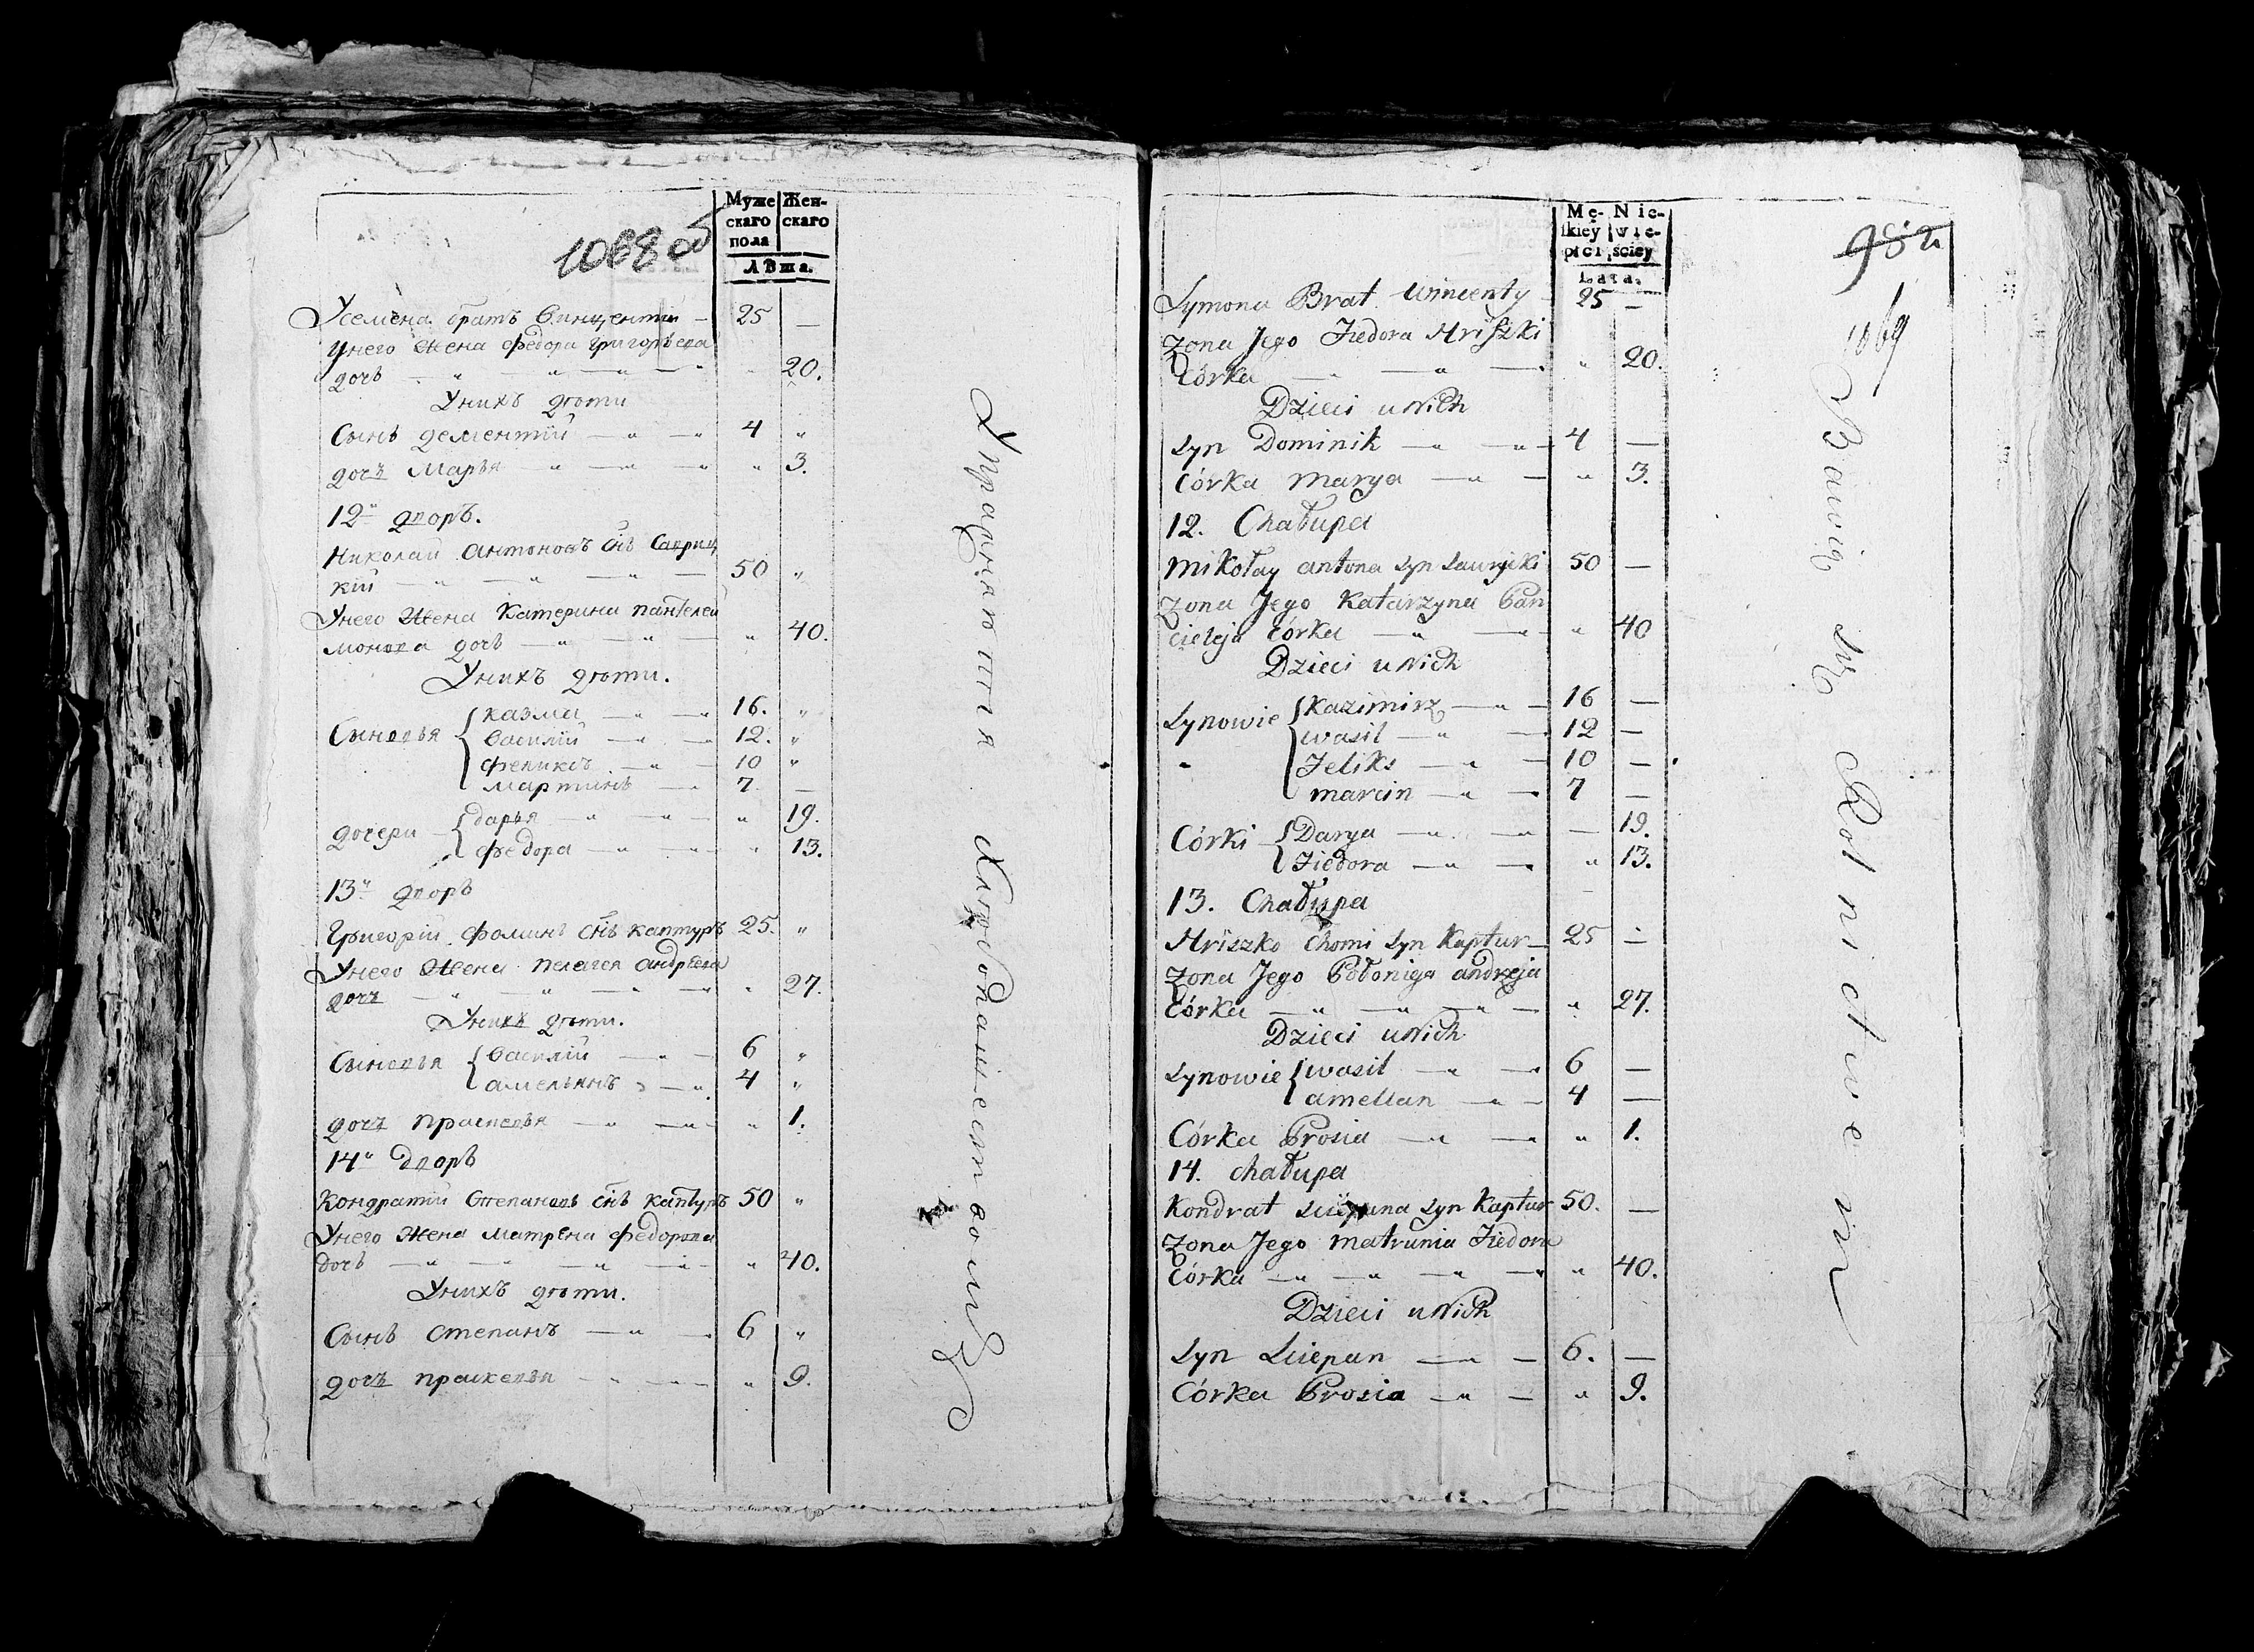 1068 об
Муже Жен-
скаго скаго
пола
Лѣта.
Усемена братъ Винцентии — 25 —
Унего Жена Федора Григорьева
дочь — „ — „ — „ — „ 20.
Унихъ дѣти
Сынъ дементiй — „ — „ 4 „
дочь Марья — „ — „ — „ „ 3.
12й дворъ.
Николай Антоновъ снъ Савриц
кiй — „ — „ — „ — 50 „
Унего Жена Катерина пантелеи
монова дочь — „ — „ — „ 40.
Унихъ дѣти.
Сыновья { казма — „ — „ 16. „
василiй — „ — „ 12. „
феликсъ — „ — 10 „
мартинъ — „ 7. —
дочери { дарья — „ — „ — „ „ 19.
федора — „ — „ „ 13.
13й дворъ
Григорiй Фоминъ снъ каптуръ 25. „
Унего Жена пелагея андреева
дочь — „ — „ — „ — „ „ 27.
Унихъ дѣти.
Сыновья { василiй — „ — 6 „
амельянъ — „ 4 „
дочь прасковья — „ — „ „ 1.
14й дворъ
Кондратiй Степановъ снъ каптуръ 50 „
Унего Жена матрена федорова
дочь — „ — „ — „ — „ „ 40.
Унихъ дѣти.
Сынъ степанъ — „ — 6 „
дочь прасковья — „ — „ „ 9.
Упражняются Хлѣбопашествомъ
Mę- Nie-
skiey wie-
płci ściey
Lata.
982
1069
Symona Brat Wincenty 25 —
Zona Jego Fiedora Hriszki
Córka — „ — „ 20.
Dzieci u Nich
Syn Dominik — „ — „ 4 —
Córka Marya — „ — „ 3.
12. Chałupa
Mikołay antona Syn Sawrycki 50 —
Zona Jego Katarzyna Pan
cieleja Córka — „ — „ „ 40
Dzieci u Nich
Synowie { Kazimirz — „ — 16 —
wasil — „ — 12 —
Feliks — „ — 10 —
marcin — „ — 7 —
Córki { Darya — „ — „ — 19.
Fiedora — „ — „ 13.
13. Chałupa
Hriszko Chomi Syn Kaptur — 25 —
Zona Jego Połoniga andrzeja
Córka — „ — „ — „ — „ 27.
Dzieci u Nich
Synowie { wasil — „ — „ 6 —
amellan — „ — 4 —
Córka Prosia — „ — „ „ 1.
14. chałupa
Kondrat Sciepana Syn Kaptur 50. —
Zona Jego matrunia Fiedora
Córka — „ — „ — „ — „ „ 40.
Dzieci u Nich
Syn Sciepan — „ — 6. —
Córka Prosia — „ — „ 9.
Bawią się Rolnictwem